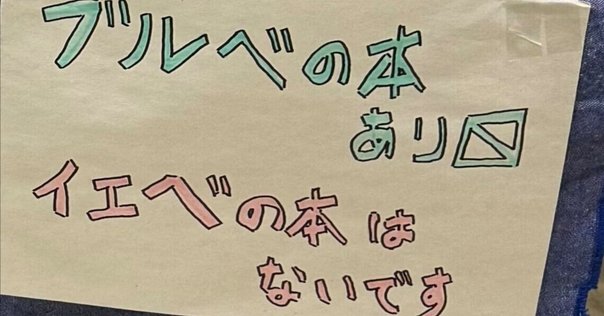 ブルベの本
あり〼
イエベの本は
ないです